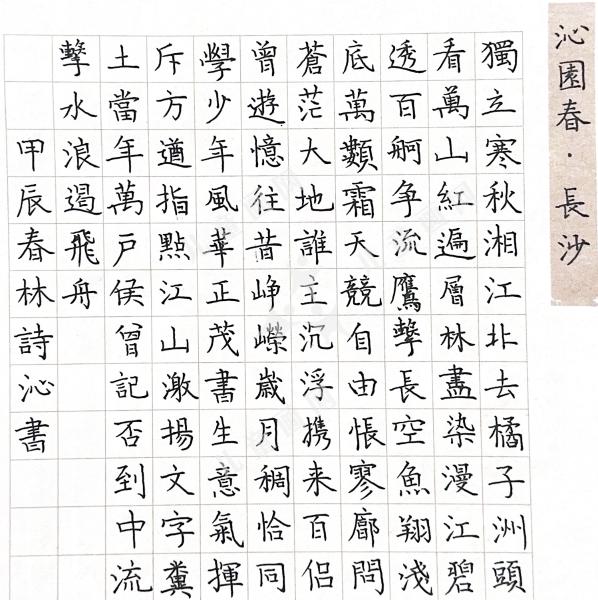 沁園春·長沙
獨立寒秋湘江北去橘子洲頭
看萬山紅遍層林盡染漫江碧
透百舸争流鷹擊長空魚翔淺
底萬類霜天競自由悵寥廓問
蒼茫大地誰主沉浮携来百侶
曾遊憶往昔崢嶸歲月稠恰同
學少年風華正茂書生意氣揮
斥方遒指點江山激揚文字糞
土當年萬戶侯曾記否到中流
擊水浪遏飛舟
甲辰春林詩沁書